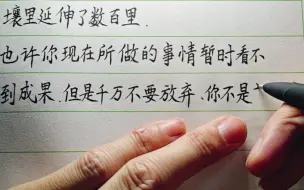 壤里延伸了数百里.
也许你现在所做的事情暂时看不
到成果.但是千万不要放弃.你不是